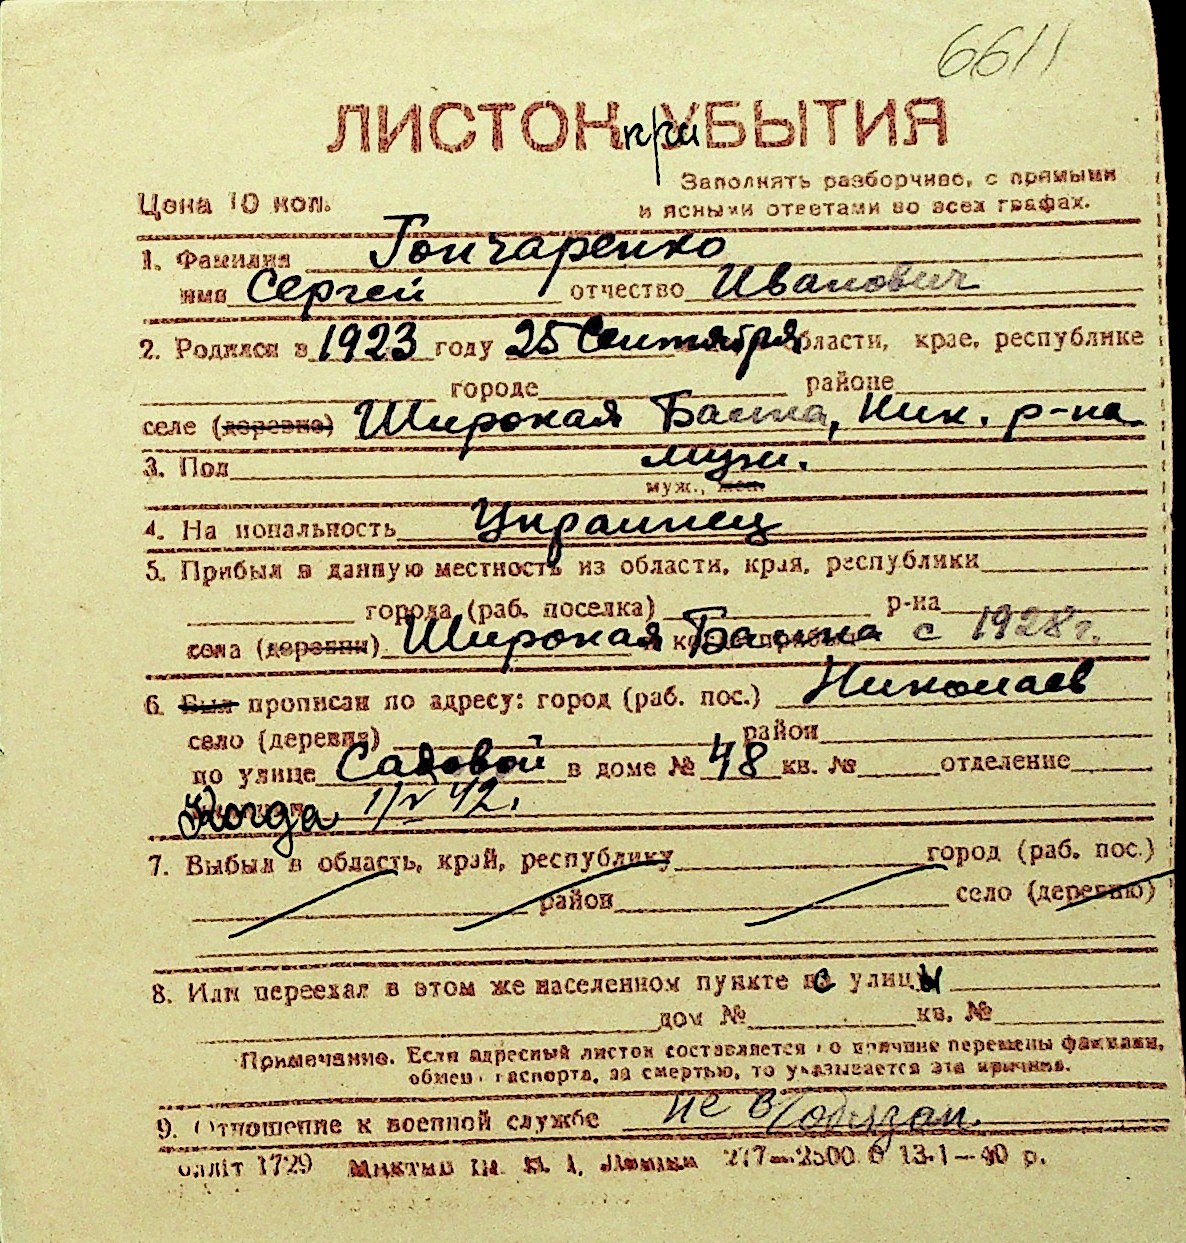 6611
ЛИСТОК при УБЫТИЯ
Заполнять разборчиво, с прямыми
Цена 10 коп.
и ясными ответами во всех графах.
1. Фамилия Гончаренко
имя Сергей отчество Иванович
2. Родился в 1923 году 25 Сентября области, крае, республике
городе районе
селе (деревне) Широкая Балка, Ник. р-на
3. Пол мужи.
муж., жен.
4. Национальность Украинец
5. Прибыл в данную местность из области, края, республики
города (раб. поселка) р-на
села (деревни) Широкая Балка с 1928 г.
6. Был прописан по адресу: город (раб. пос.) Николаев
село (деревня) район
по улице Садовой в доме № 48 кв. № отделение
Когда 1/V 42.
7. Выбыл в область, край, республику город (раб. пос.)
район село (деревню)
8. Или переехал в этом же населенном пункте с улицы
дом № кв. №
Примечание. Если адресный листок составляется по причине перемены фамилии,
обмена паспорта, за смертью, то указывается эта причина.
9. Отношение к военной службе не в/обязан.
1729 217—2500 13-1—40 р.